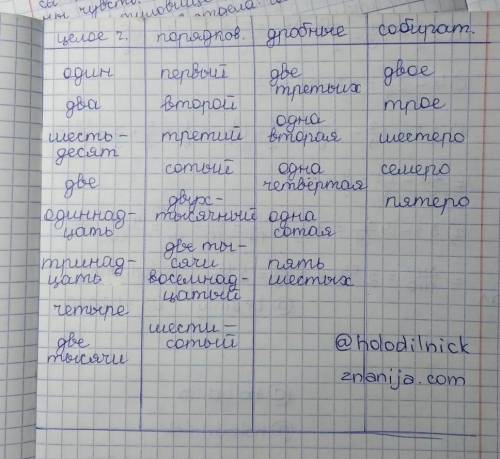 целое ч. порядков. дробные собират.
один первый две третьих двое
два второй одна вторая трое
шесть-
десят
третий
шестеро
две
сотый
одна
четвёртая
семеро
одиннад-
цать
двух-
тысячный
одна
сотая
пятеро
тринад-
цать
две ты-
сячи
восемнад-
цатый
пять
шестых
четыре
две
тысячи
шести-
сотый
@holodilnick
znanija.com